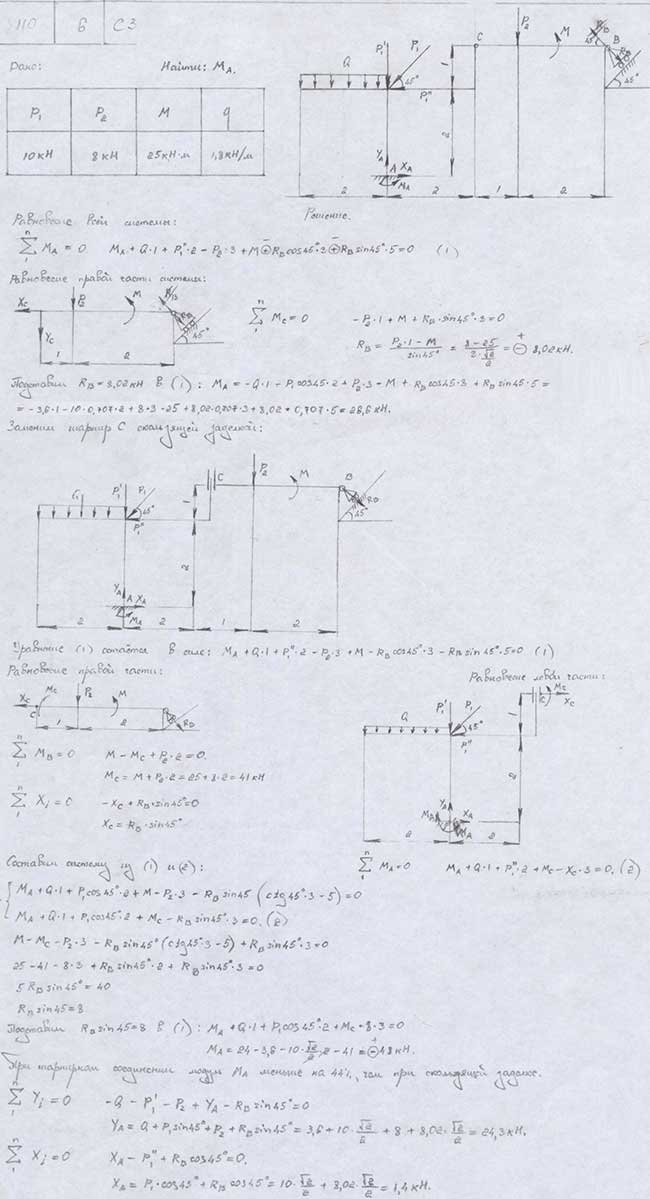 110 6 С3
Дано: Найти: M_A.
P₁ P₂ M q
10кН 8кН 25кН·м 1,8кН/м
Q P₁' P₁ 45° P₁'' C P₂ M B R_B 45° 1 2 Y_A A X_A M_A 2 2 1 2
Решение.
Равновесие всей системы:
n Σ 1 M_A = 0 M_A + Q·1 + P₁''·2 − P₂·3 + M ⊕ R_B cos45°·3 ⊕ R_B sin45°·5 = 0 (1)
Равновесие правой части системы:
X_C Y_C P₂ M R_B 45° 1 2
n Σ 1 M_C = 0 −P₂·1 + M + R_B·sin45°·3 = 0
R_B = (P₂·1 − M)/sin45° = (8 − 25)/(3·√2/2) = ⊖ 8,02кН.
Подставим R_B = 8,02кН в (1): M_A = −Q·1 − P₁cos45·2 + P₂·3 − M + R_B cos45·3 + R_B sin45·5 =
= −3,6·1 − 10·0,707·2 + 8·3 − 25 + 8,02·0,707·3 + 8,02·0,707·5 = 26,6кН.
Заменим шарнир С скользящей заделкой:
P₁' P₁ 45° P₁'' C P₂ M B R_B 45° 1 2 Y_A A X_A M_A 2 2 1 2
Уравнение (1) остаётся в силе: M_A + Q·1 + P₁''·2 − P₂·3 + M − R_B cos45°·3 − R_B sin45°·5 = 0 (1)
Равновесие правой части: Равновесие левой части:
X_C M_C C P₂ M R_B 1 2
Q P₁' P₁ 45° P₁'' C M_C X_C 1 2 Y_A X_A M_A 2 2
n Σ 1 M_B = 0 M − M_C + P₂·2 = 0.
M_C = M + P₂·2 = 25 + 8·2 = 41кН
n Σ 1 X_i = 0 −X_C + R_B·sin45° = 0
X_C = R_B·sin45°
n Σ 1 M_A = 0 M_A + Q·1 + P₁''·2 + M_C − X_C·3 = 0. (2)
Составим систему из (1) и (2):
M_A + Q·1 + P₁cos45°·2 + M − P₂·3 − R_B sin45 (ctg45°·3 − 5) = 0
M_A + Q·1 + P₁cos45°·2 + M_C − R_B sin45°·3 = 0. (2)
M − M_C − P₂·3 − R_B sin45°(ctg45°·3 − 5) + R_B sin45°·3 = 0
25 − 41 − 8·3 + R_B sin45°·2 + R_B sin45°·3 = 0
5 R_B sin45° = 40
R_B sin45 = 8
Подставим R_B sin45 = 8 в (1): M_A + Q·1 + P₁cos45°·2 + M_C − 8·3 = 0
M_A = 24 − 3,6 − 10·√2/2·2 − 41 = ⊖ 48кН.
При шарнирном соединении модуль M_A меньше на 44%, чем при скользящей заделке.
n Σ 1 Y_i = 0 −Q − P₁' − P₂ + Y_A − R_B sin45° = 0
Y_A = Q + P₁sin45° + P₂ + R_B sin45° = 3,6 + 10·√2/2 + 8 + 8,02·√2/2 = 24,3кН.
n Σ 1 X_i = 0 X_A − P₁'' + R_B cos45° = 0.
X_A = P₁·cos45° + R_B cos45° = 10·√2/2 + 8,02·√2/2 = 1,4кН.